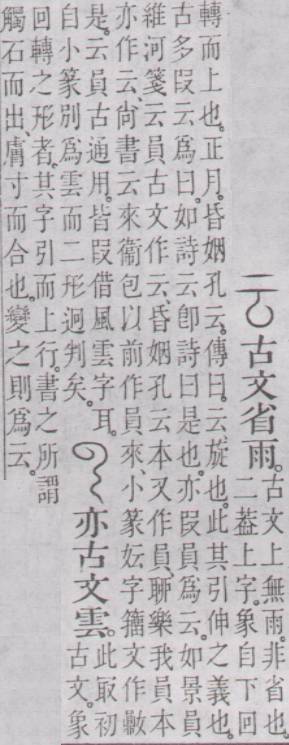 古文省雨。
古文上無雨。非省也。
二葢上字。象自下回
轉而上也。正月。昏姻孔云。傳曰。云旋也。此其引伸之義也。
古多叚云爲曰。如詩云卽詩曰是也。亦叚員爲云。如景員
維河箋云員古文作云、昏姻孔云本又作員、聊樂我員本
亦作云、尙書云來衞包以前作員來、小篆妘字籒文作
是。云員古通用。皆叚借風雲字耳。
自小篆別爲雲而二形迥判矣。
亦古文雲。
此取初
古文。象
回轉之形者。其字引而上行。書之所謂
觸石而出、膚寸而合也。變之則爲云。